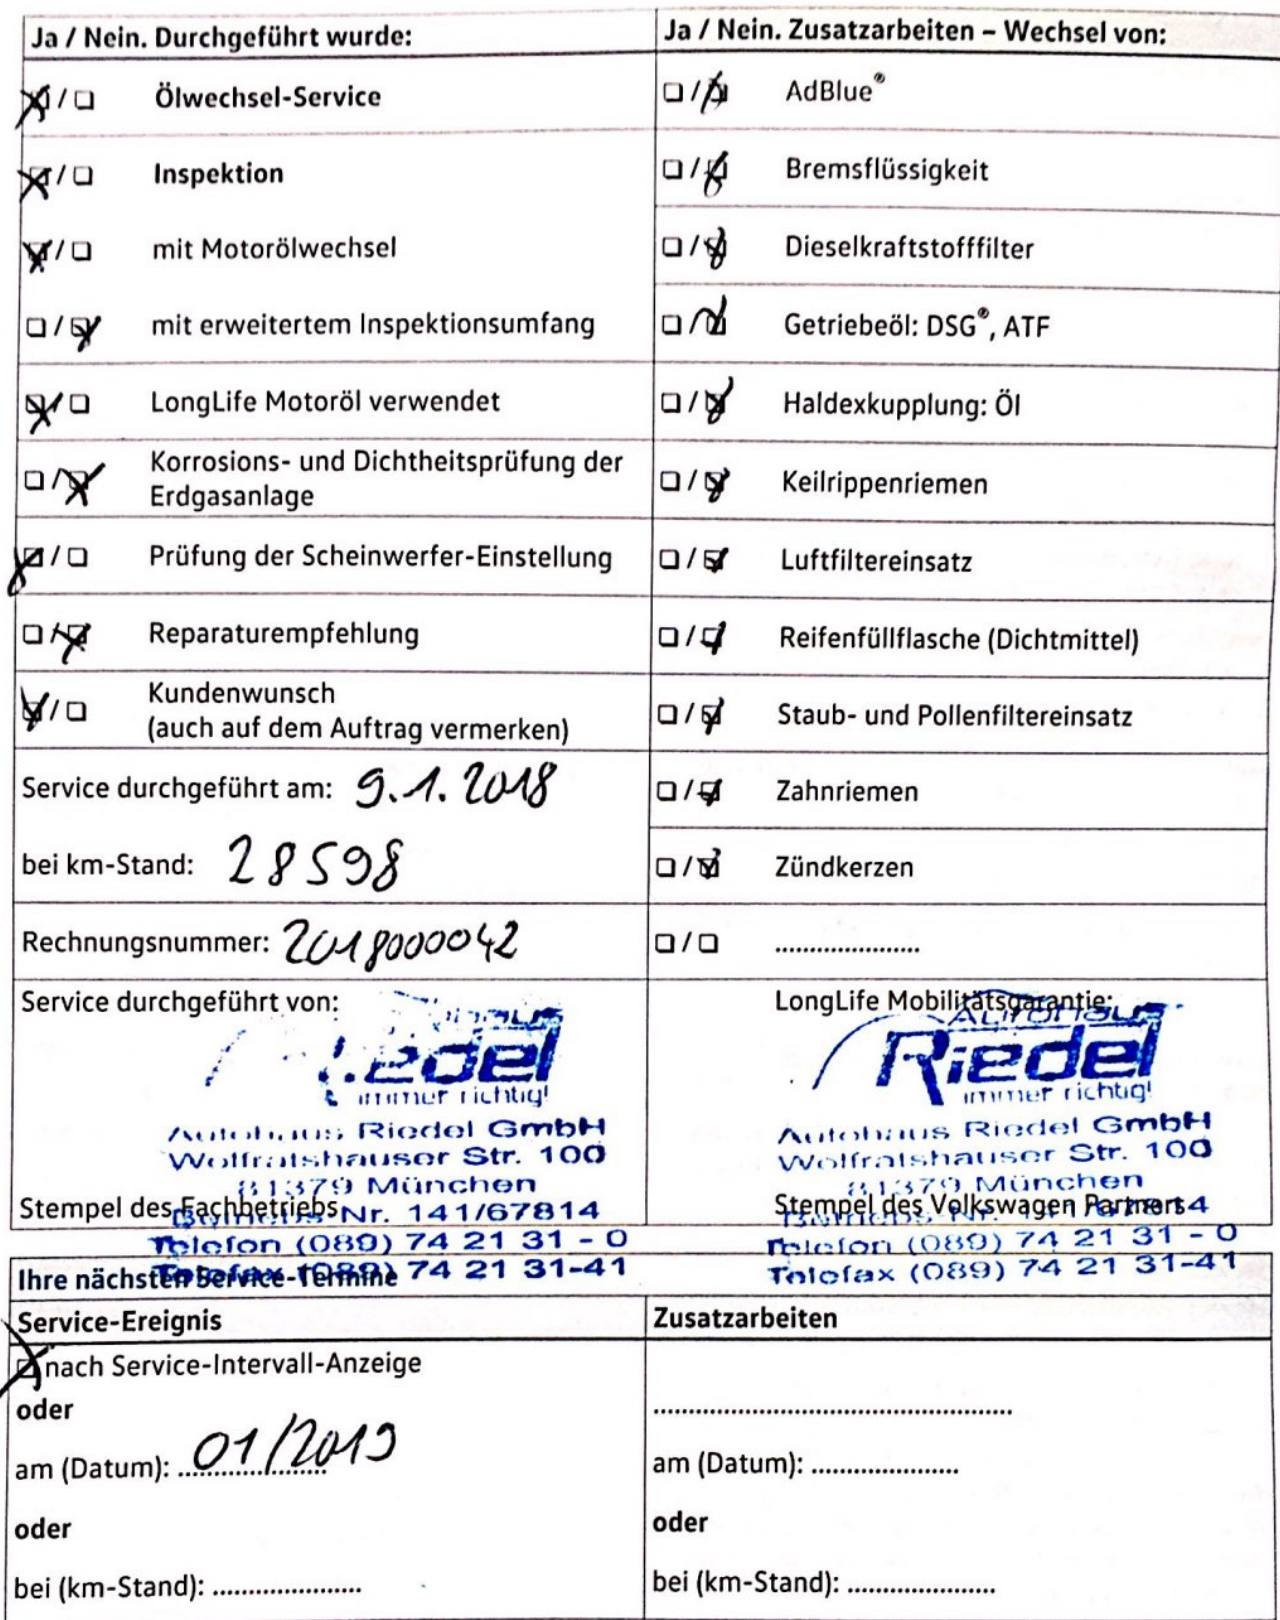 Ja / Nein. Durchgeführt wurde:
☒/☐ Ölwechsel-Service
☒/☐ Inspektion
☒/☐ mit Motorölwechsel
☐/☒ mit erweitertem Inspektionsumfang
☒/☐ LongLife Motoröl verwendet
☐/☒ Korrosions- und Dichtheitsprüfung der
Erdgasanlage
☒/☐ Prüfung der Scheinwerfer-Einstellung
☐/☒ Reparaturempfehlung
☒/☐ Kundenwunsch
(auch auf dem Auftrag vermerken)
Service durchgeführt am: 9.1.2018
bei km-Stand: 28598
Rechnungsnummer: 2018000042
Service durchgeführt von:
immer richtig!
Autohaus Riedel GmbH
Wolfratshauser Str. 100
81379 München
Stempel des Fachbetriebs
Betriebs-Nr. 141/67814
Telefon (089) 74 21 31 - 0
Telefax (089) 74 21 31-41
Ja / Nein. Zusatzarbeiten – Wechsel von:
☐/☒ AdBlue®
☐/☒ Bremsflüssigkeit
☐/☒ Dieselkraftstofffilter
☐/☒ Getriebeöl: DSG®, ATF
☐/☒ Haldexkupplung: Öl
☐/☒ Keilrippenriemen
☐/☒ Luftfiltereinsatz
☐/☒ Reifenfüllflasche (Dichtmittel)
☐/☒ Staub- und Pollenfiltereinsatz
☐/☒ Zahnriemen
☐/☒ Zündkerzen
☐/☐ .....................
LongLife Mobilitätsgarantie:
Autohaus
Riedel
immer richtig!
Autohaus Riedel GmbH
Wolfratshauser Str. 100
81379 München
Stempel des Volkswagen Partners
Telefon (089) 74 21 31 - 0
Telefax (089) 74 21 31-41
Ihre nächsten Service-Termine
Service-Ereignis
☒ nach Service-Intervall-Anzeige
oder
am (Datum): 01/2019
oder
bei (km-Stand): .....................
Zusatzarbeiten
....................................................
am (Datum): .....................
oder
bei (km-Stand): .....................